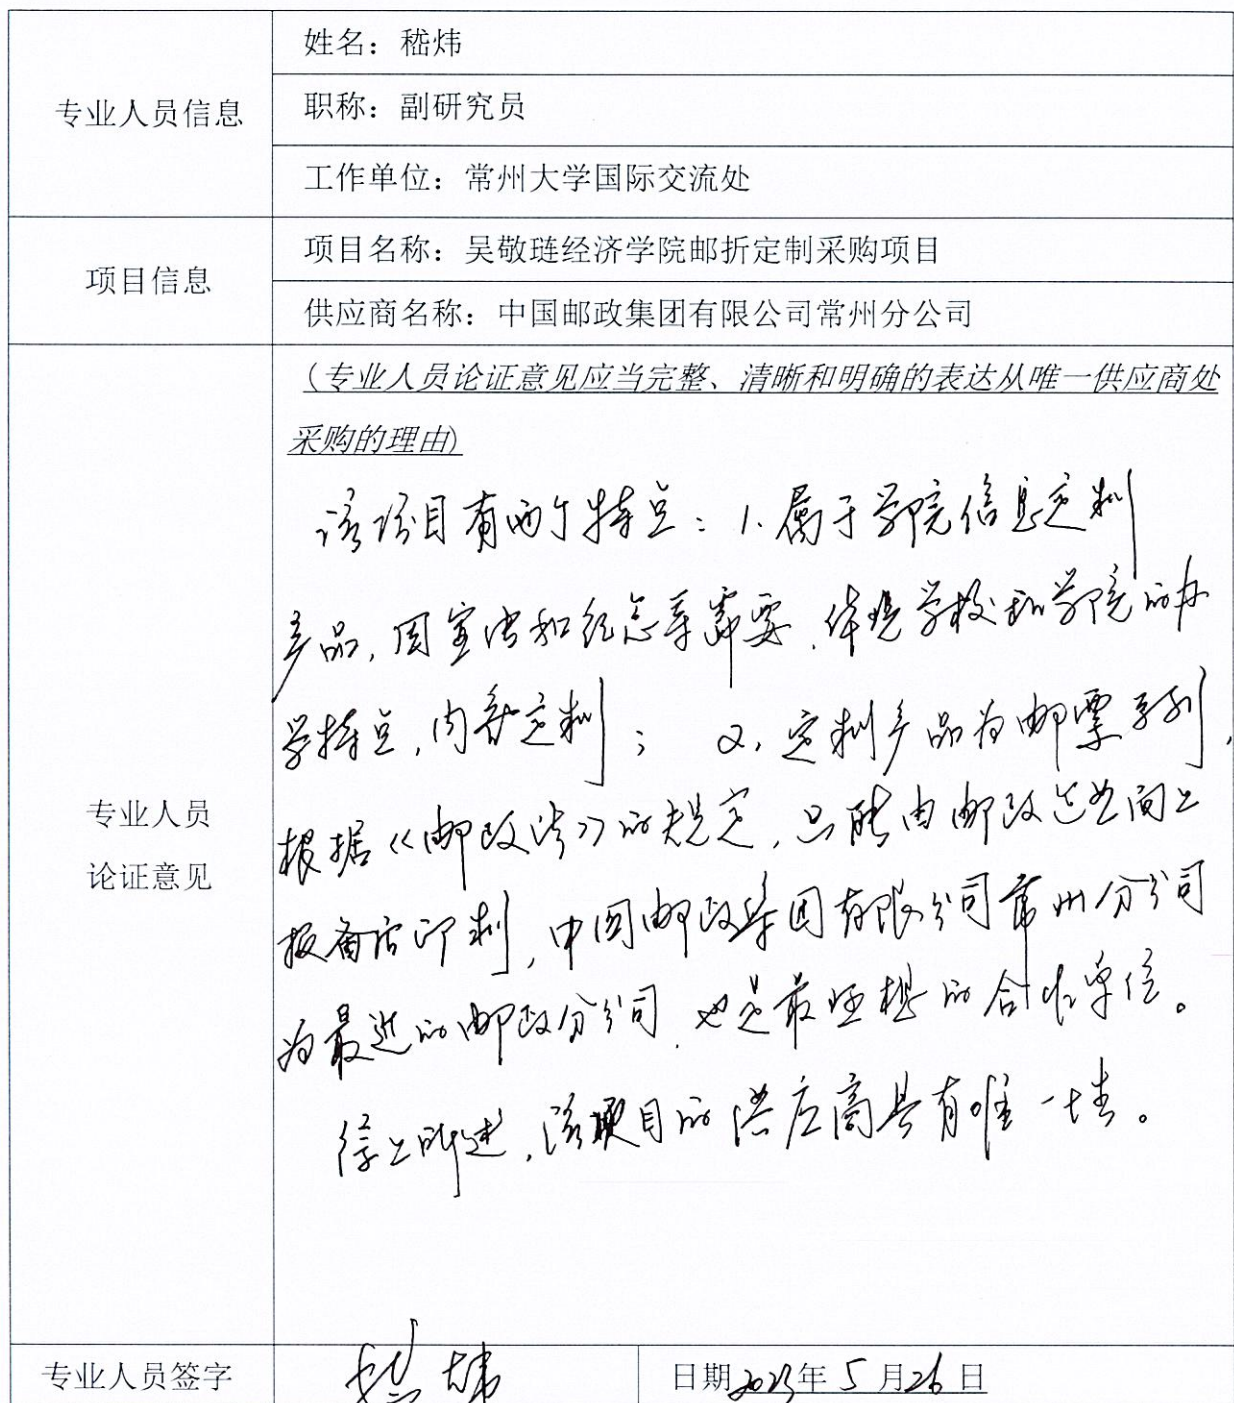 姓名：嵇炜
专业人员信息
职称：副研究员
工作单位：常州大学国际交流处
项目名称：吴敬琏经济学院邮折定制采购项目
项目信息
供应商名称：中国邮政集团有限公司常州分公司
（专业人员论证意见应当完整、清晰和明确的表达从唯一供应商处
采购的理由）
该项目有两个特点：1. 属于学院信息定制
产品，因宣传和纪念等需要，体现学校和学院的办
学特点，内容定制；2. 定制产品为邮票系列，
根据《邮政法》的规定，只能由邮政 向上
报备后印制，中国邮政集团有限公司常州分公司
为最近的邮政分公司，也是最理想的合作单位。
综上所述，该项目的供应商具有唯一性。
专业人员
论证意见
专业人员签字
嵇炜
日期2023年5月26日